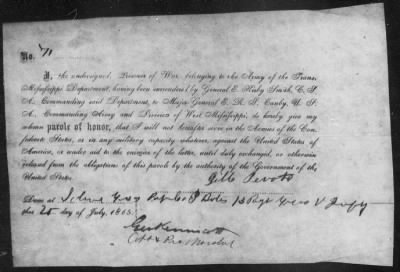 No. 71
I, the undersigned, Prisoner of War, belonging to the Army of the Trans-
Mississippi Department, having been surrendered by General E. Kirby Smith, C. S.
A., Commanding said Department, to Major General E. R. S. Canby, U. S.
A., Commanding Army and Division of West Mississippi, do hereby give my
solemn parole of honor, that I will not hereafter serve in the Armies of the Con-
federate States, or in any military capacity whatever, against the United States of
America, or render aid to the enemies of the latter, until duly exchanged, or otherwise
released from the obligations of this parole by the authority of the Government of the
United States.
Done at
this 20 day of July, 1865.
Capt &